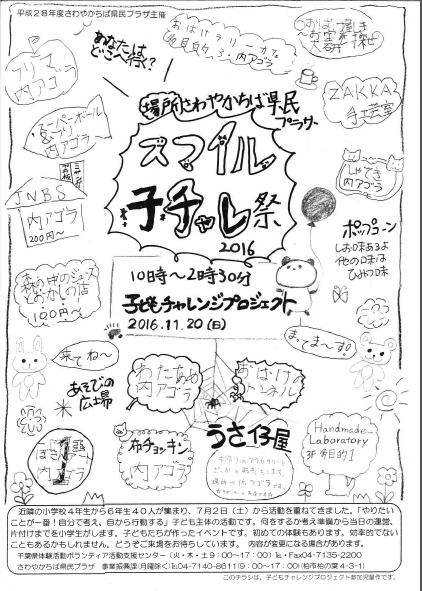 平成28年度さわやかちば県民プラザ主催
あなたは
どこへ行く?
フリマ
内アゴラ
内アゴラ
ZAKKA
手工芸室
場所 さわやかちば県民
プラザ
スマイル
子チャレ祭
2016
スーパーボール
内アゴラ
しゃてき
内アゴラ
JNBS
内アゴラ
200円~
ポップコーン
しお味あるよ
他の味は
ひみつ味
10時~2時30分
子どもチャレンジプロジェクト
2016.11.20(日)
森の中のジュースと
おかしの店
120円~
来てね~
まってま~す。
あそびの
広場
わたあめ
内アゴラ
おばけの
トンネル
うさ仔屋
布チョッキン
内アゴラ
Handmade
Laboratory
3F
近隣の小学校4年生から6年生40人が集まり、7月2日(土)から活動を重ねてきました。「やりたい
ことが一番!自分で考え、自から行動する」子ども主体の活動です。何をするか考え準備から当日の運営、
片付けまでを小学生がします。子どもたちが作ったイベントです。初めての体験もあります。効率的でない
こともあるかもしれません。どうぞご来場をお待ちしています。 内容が変更になる場合があります。
千葉県体験活動ボランティア活動支援センター(火・木・土9:00~17:00)℡・Fax04-7135-2200
さわやかちば県民プラザ 事業振興課(月曜除く)℡04-7140-8611(9:00~17:00)(柏市柏の葉4-3-1)
このチラシは、子どもチャレンジプロジェクト参加児童作です。